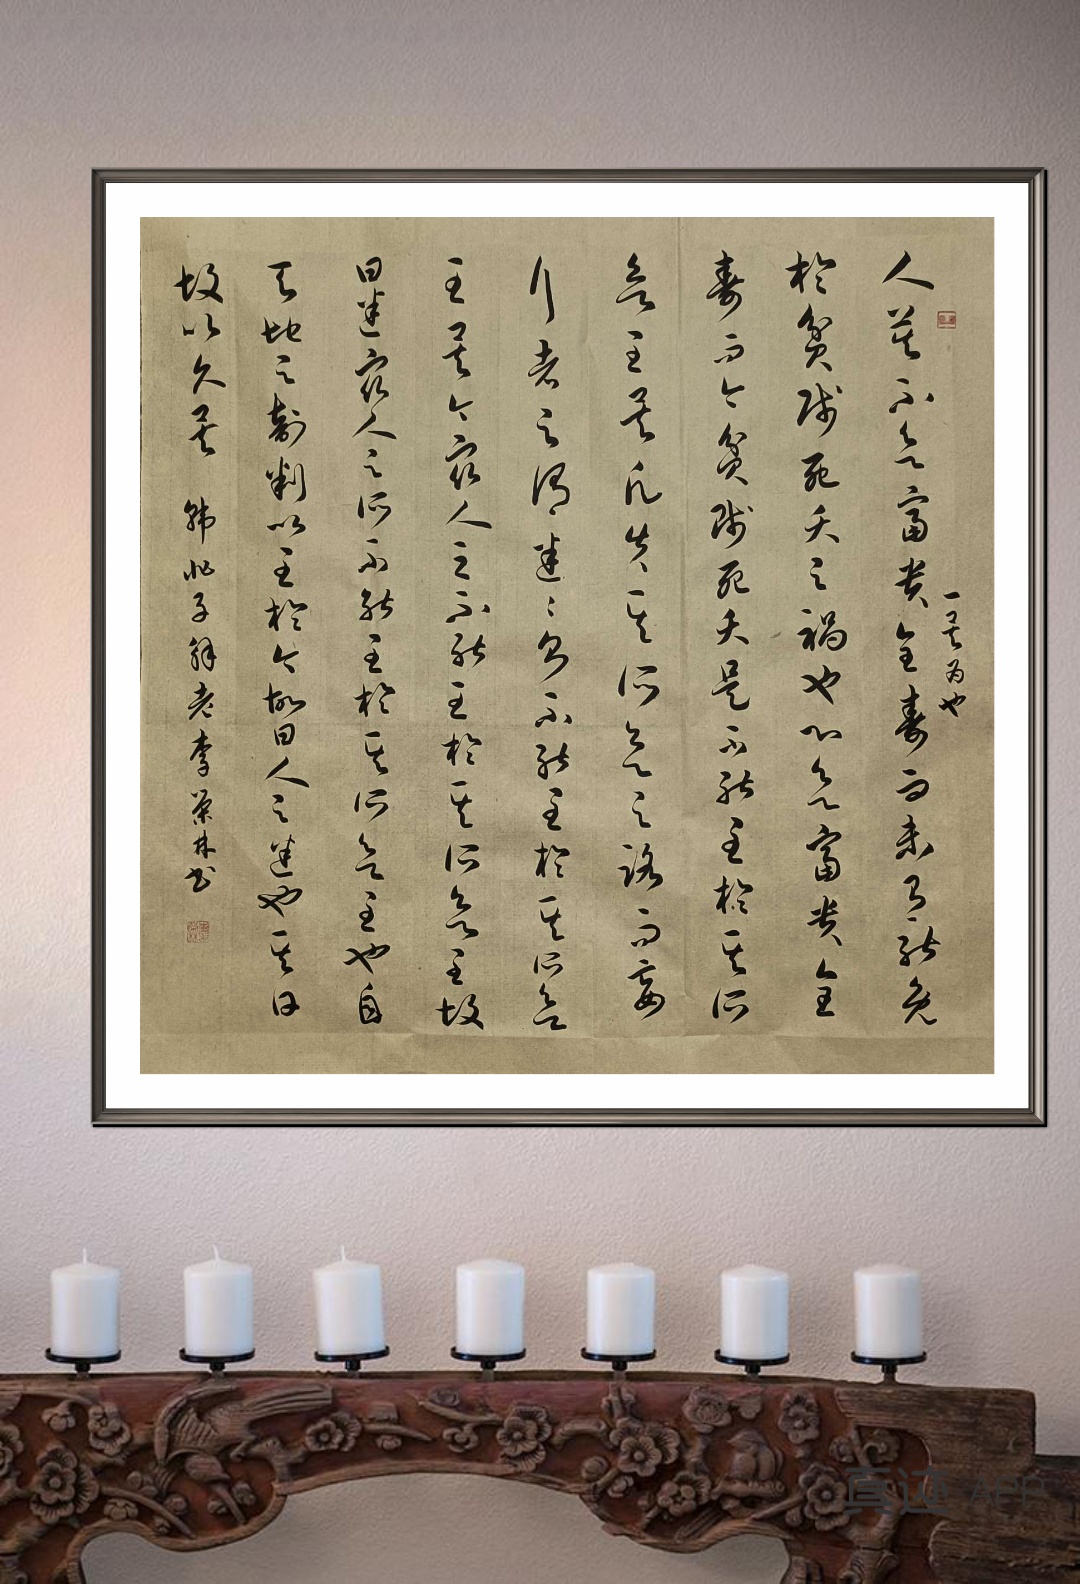 人莫不欲富貴全壽而未有能免
於貧賤死夭之禍也心欲富貴全
壽而今貧賤死夭是不能至於其所
欲至矣凡失其所欲之路而妄
行者之謂迷〻則不能至於其所欲
至矣今眾人之不能至於其所欲至故
曰迷眾人之所不能至於其所欲至也自
天地之剖判以至於今故曰人之迷也其日
故以久矣 韩非子解老李荣林书
一矣为也
真迹APP